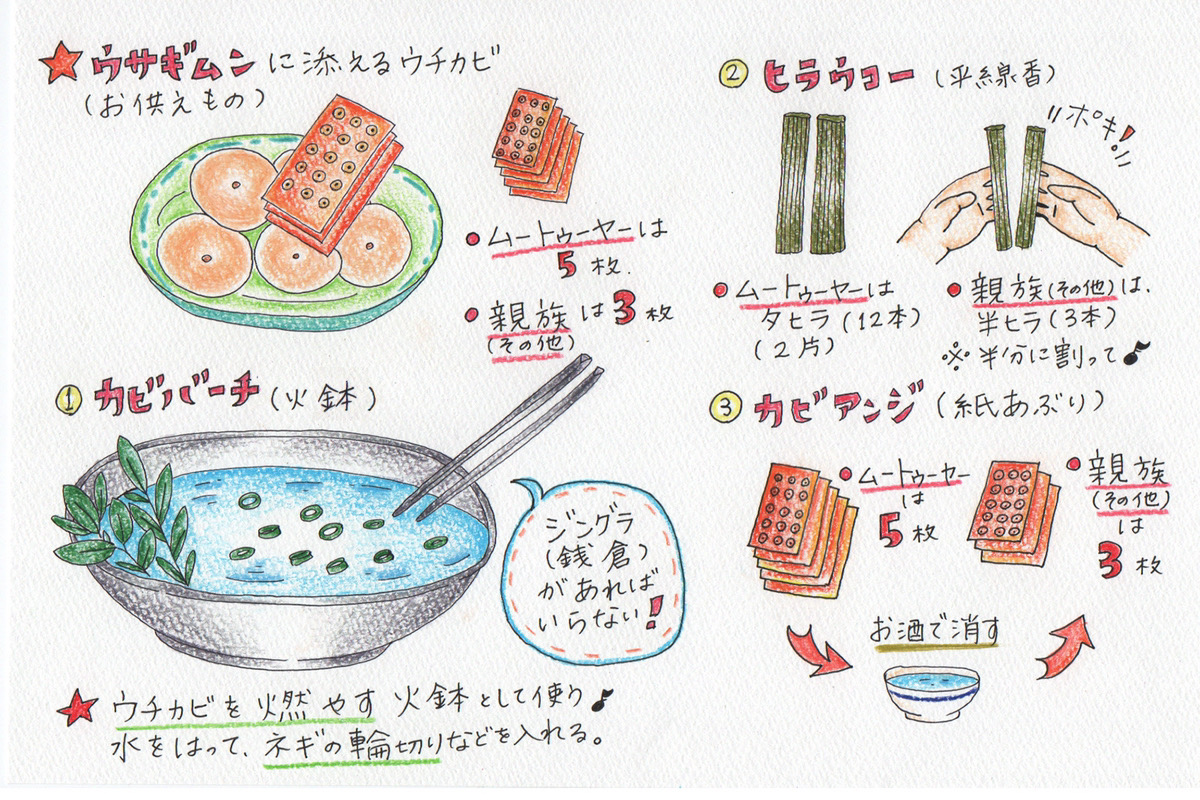 ★ウサギムンに添えるウチカビ
(お供えもの)
●ムートゥーヤーは
5枚.
●親族は3枚
(その他)
①カビバーチ(火鉢)
ジングラ
(銭倉)
があれば
いらない!
★ウチカビを燃やす火鉢として使う♪
水をはって、ネギの輪切りなどを入れる。
②ヒラウコー(平線香)
"ポキ!"
●ムートゥーヤーは
タヒラ(12本)
(2片)
●親族(その他)は、
半ヒラ(3本)
※半分に割って♪
③カビアンジ(紙あぶり)
●ムートゥーヤー
は
5枚
●親族
(その他)
は
3枚
お酒で消す